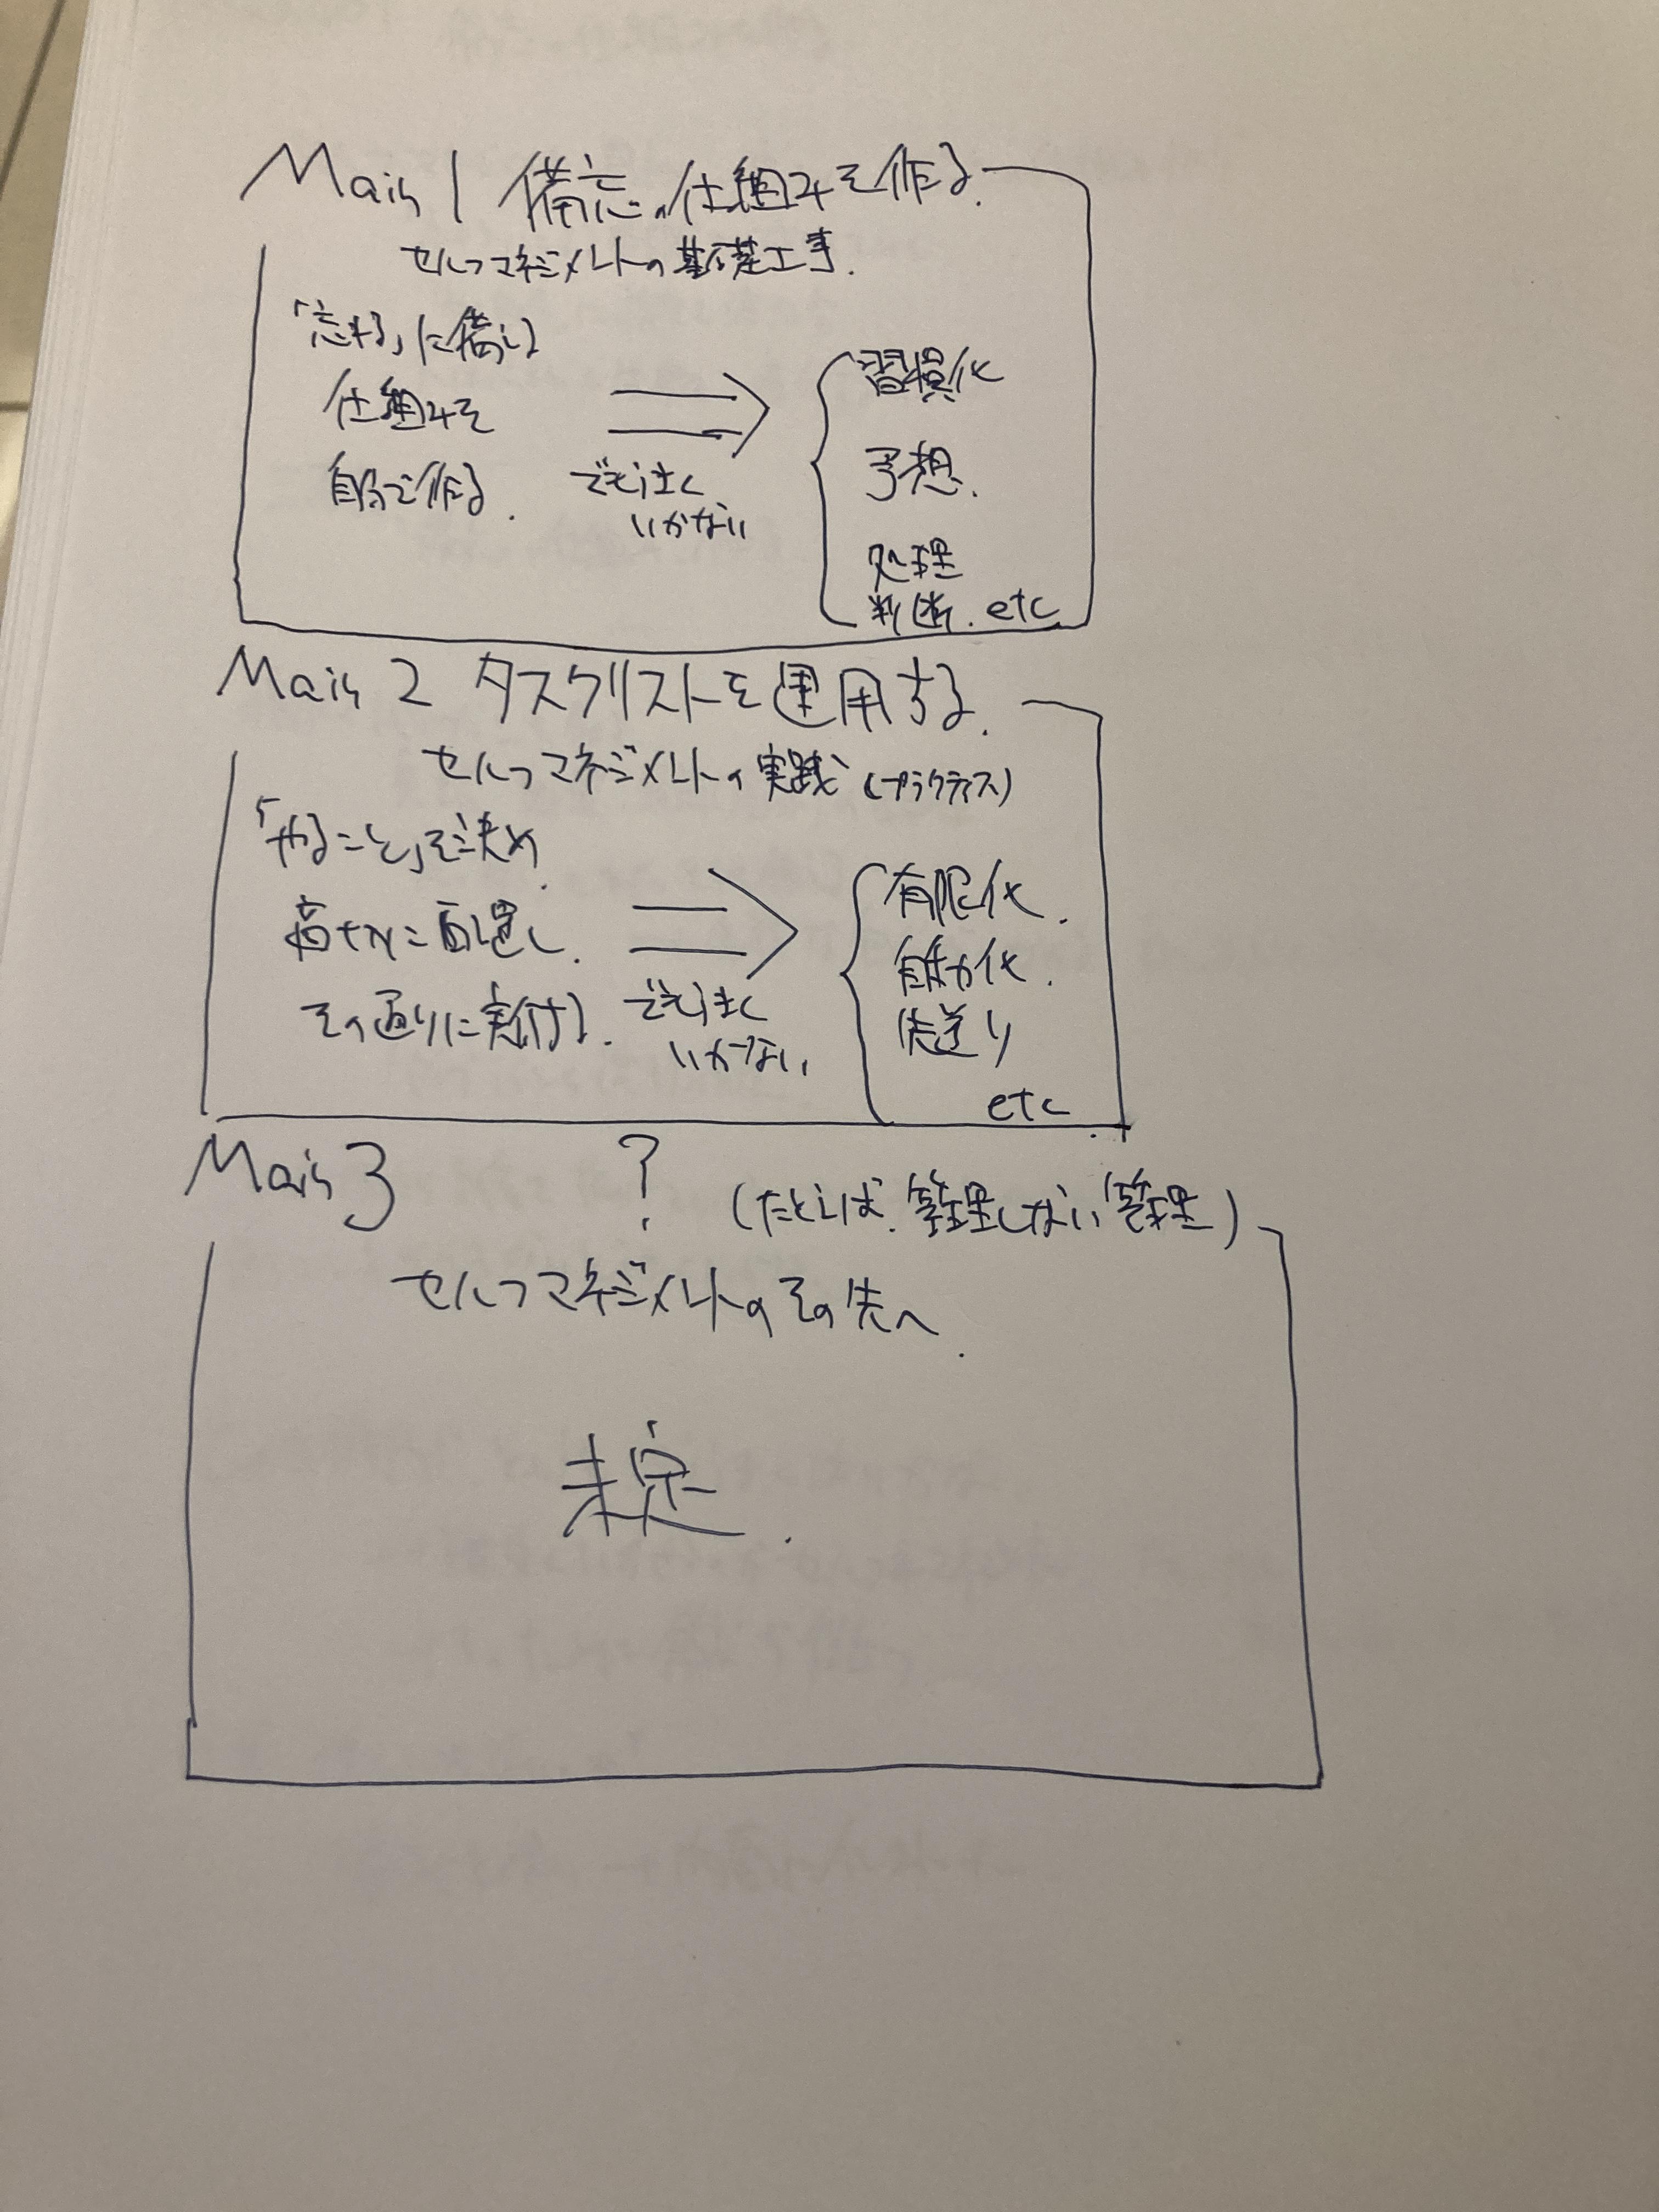 Main 1 備忘の仕組みを作る.
セルフマネジメントの基礎工事.
「忘れる」に備える
仕組みを
自分で作る.
でもうまく
いかない
習慣化
予想.
処理
判断. etc
Main 2 タスクリストを運用する.
セルフマネジメントの実践 (プラクティス)
「やること」を決め
適切に配置し.
その通りに実行する.
でもうまく
いかない
有限化.
自動化.
先送り
etc
Main 3 ?
(たとえば. 管理しない管理)
セルフマネジメントのその先へ.
未定.